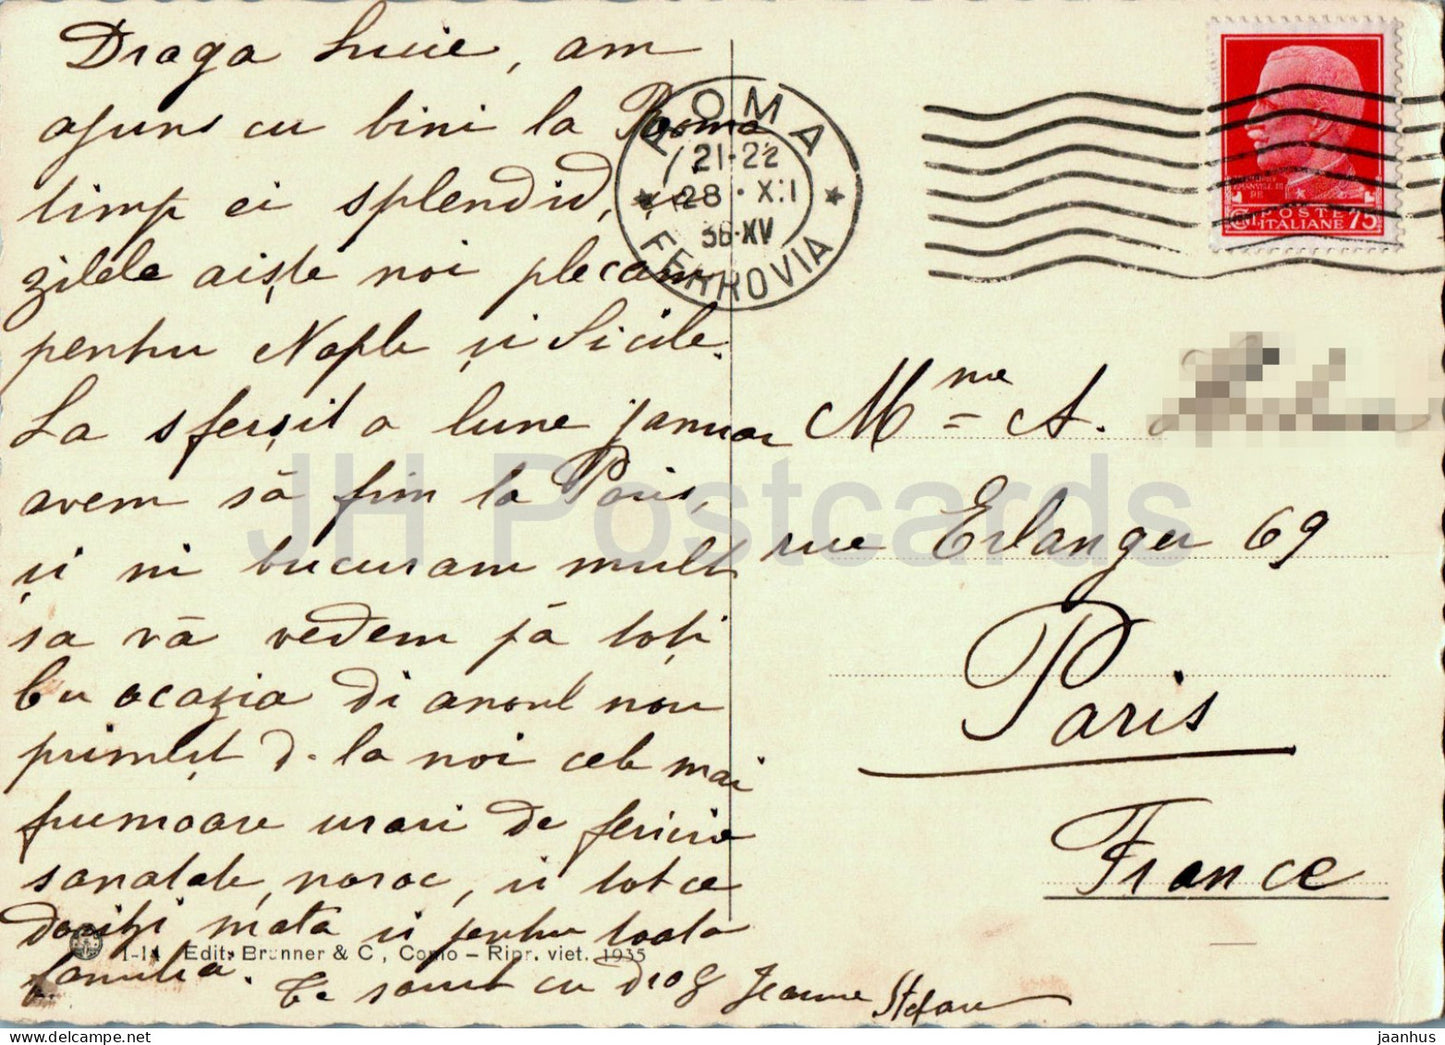 Draga Lucie, am
ajuns cu bini la Roma
timp ei splendid, și
zilele aişte noi plecam
pentru Naple și Sicile.
La sfarșit a lune januar
avem să fim la Paris,
și ni bucuram mult
sa vă vedem pă toți
Cu ocazia di anoul nou
primiț d. la noi cele mai
frumoare urari de fericire
sanatate, noroc, și tot ce
doriți mata și pentru toata
familia.
Te sarut cu drag Jeanne Stefan
ROMA
21-22
28·XII
36·XV
FERROVIA
POSTE
ITALIANE 75
Mme A.
rue Erlanger 69
Paris
France
1-14 Edit. Brunner & C., Como – Ripr. viet. 1935
JH Postcards
delcampe.net
jaanhus